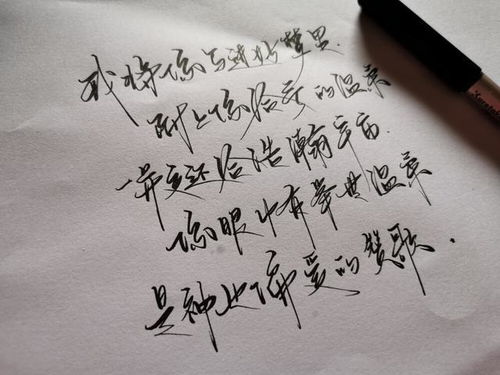 我将你写进我的梦里.
附上你给予的温柔
一并交还给浩瀚宇宙.
你眼中有慈悲温柔
是神也偏爱的赞歌.